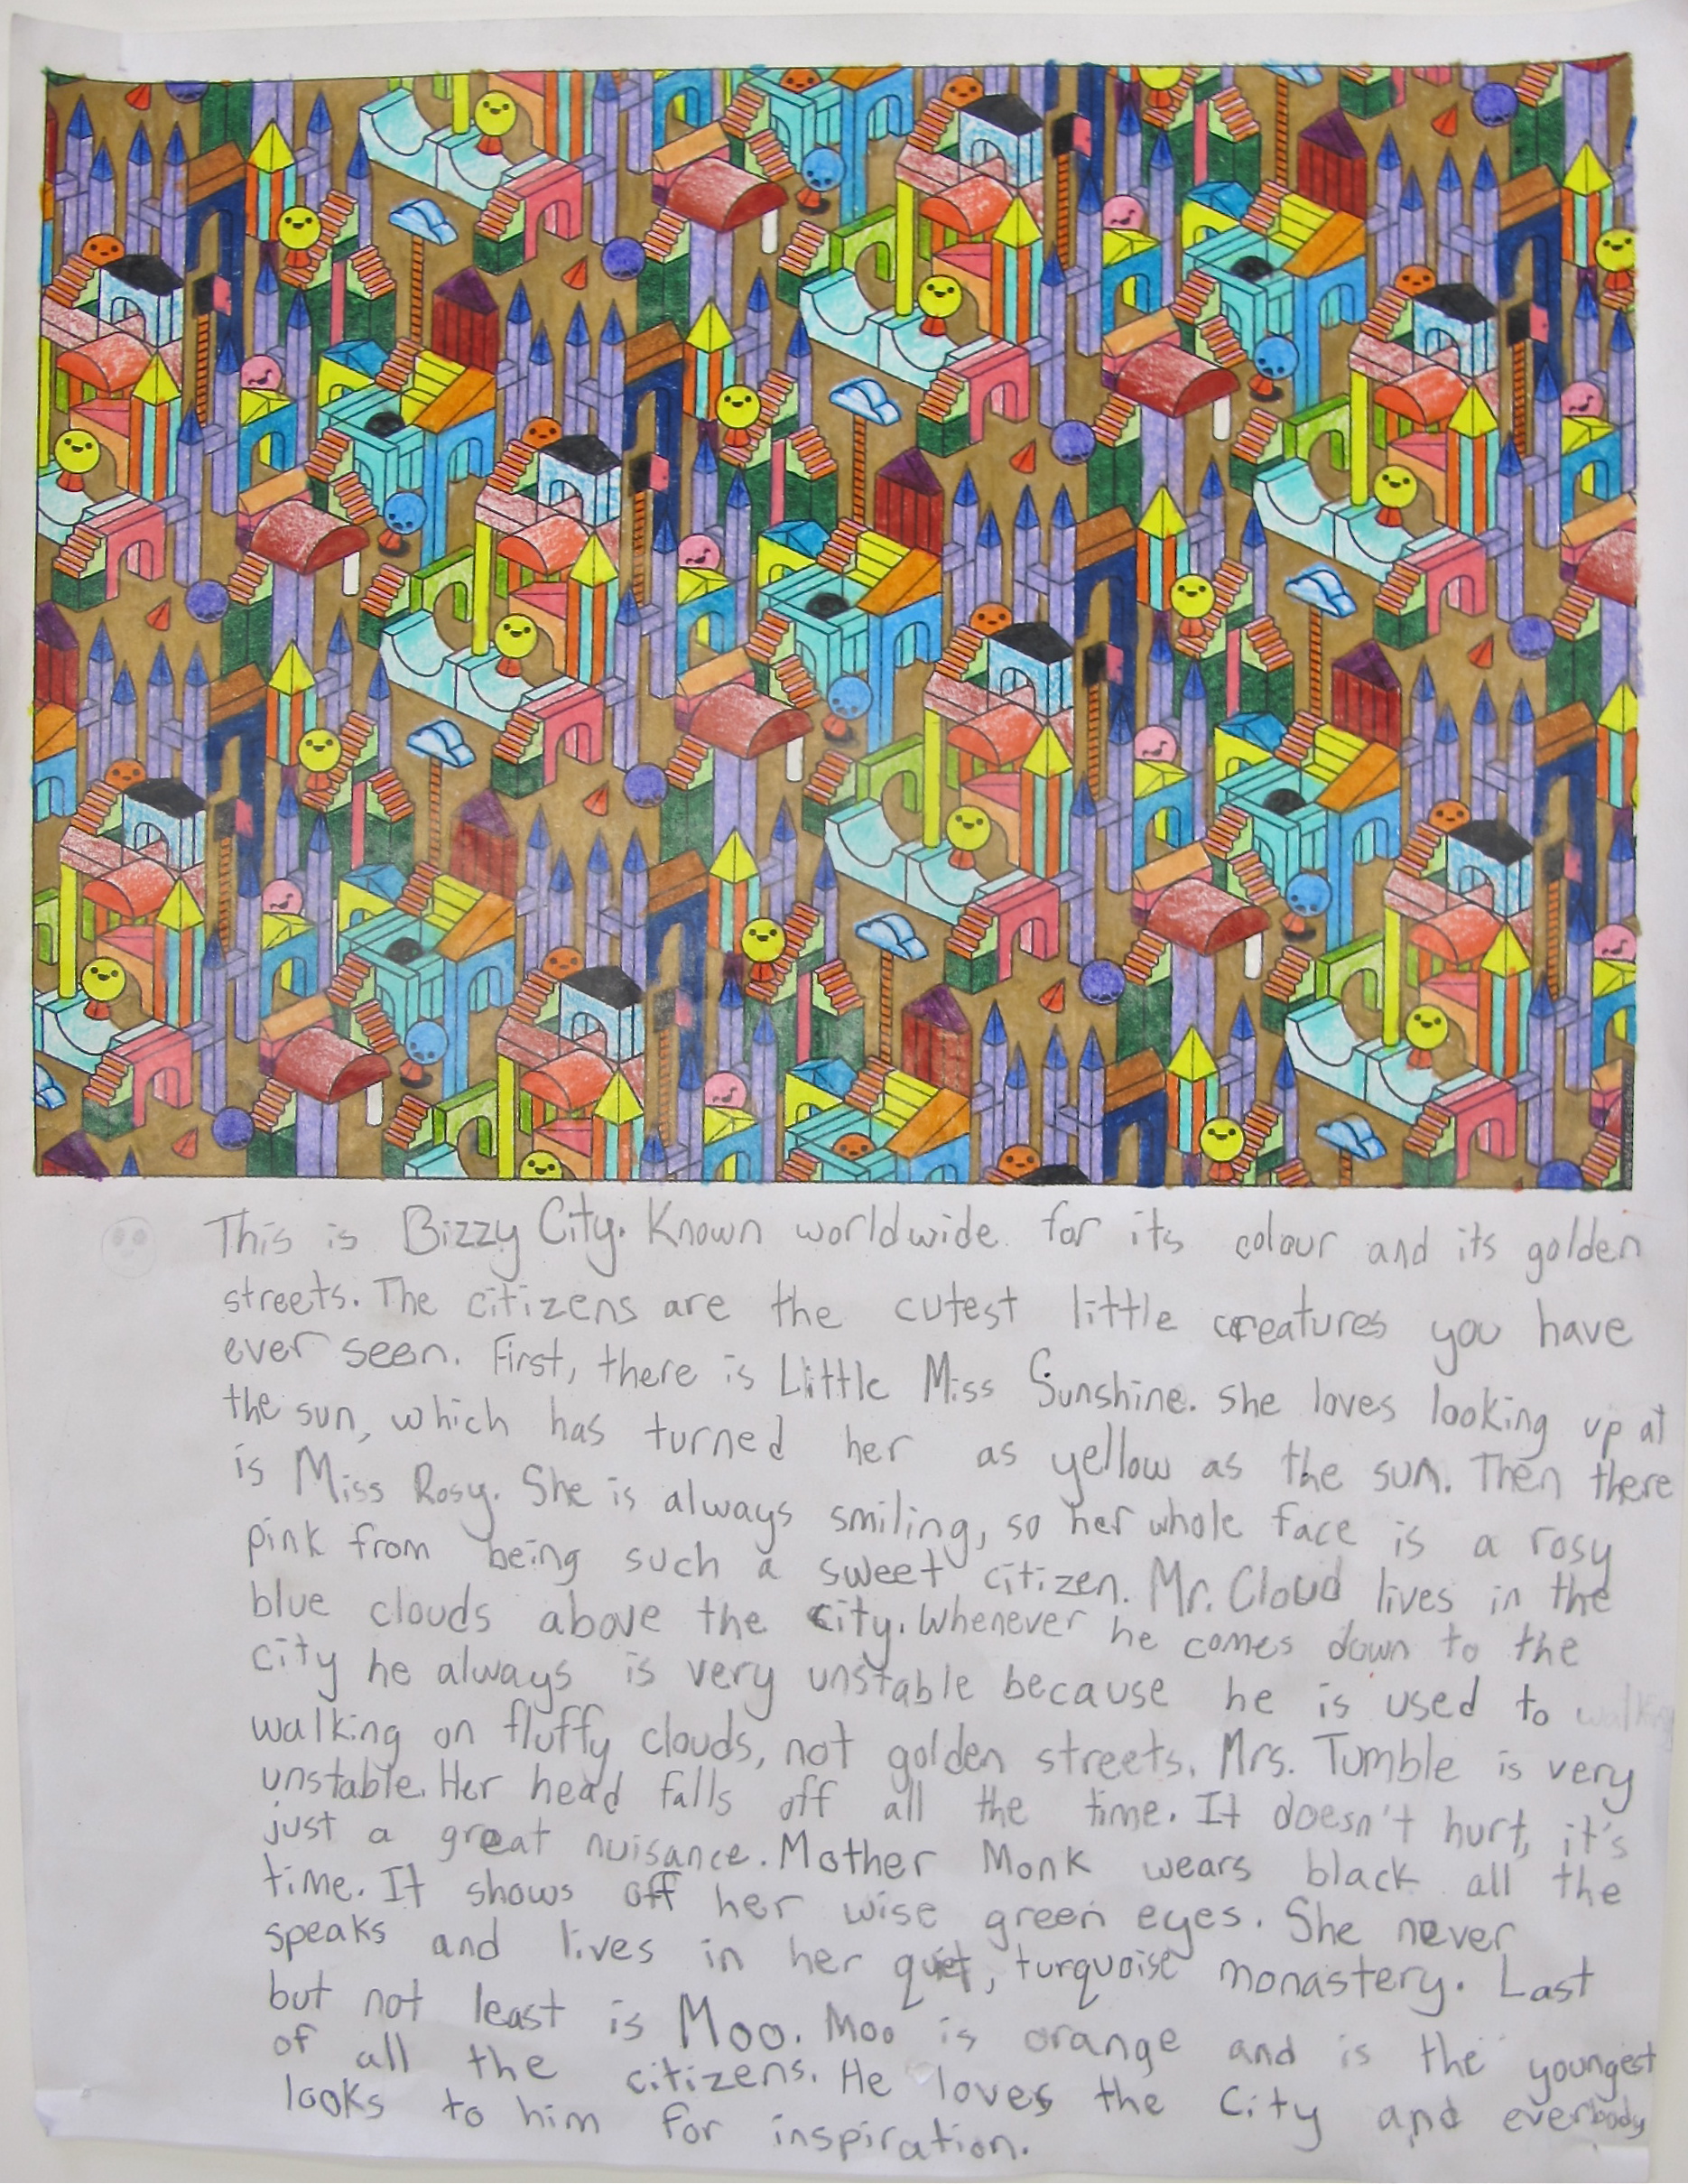 This is Bizzy City. Known worldwide for its colour and its golden
streets. The citizens are the cutest little creatures you have
ever seen. First, there is Little Miss Sunshine. She loves looking up at
the sun, which has turned her as yellow as the sun. Then there
is Miss Rosy. She is always smiling, so her whole face is a rosy
pink from being such a sweet citizen. Mr. Cloud lives in the
blue clouds above the city. Whenever he comes down to the
city he always is very unstable because he is used to walking
walking on fluffy clouds, not golden streets. Mrs. Tumble is very
unstable. Her head falls off all the time. It doesn't hurt, it's
just a great nuisance. Mother Monk wears black all the
time. It shows off her wise green eyes. She never
speaks and lives in her quiet, turquoise monastery. Last
but not least is Moo. Moo is orange and is the youngest
of all the citizens. He loves the City and everbody
looks to him for inspiration.